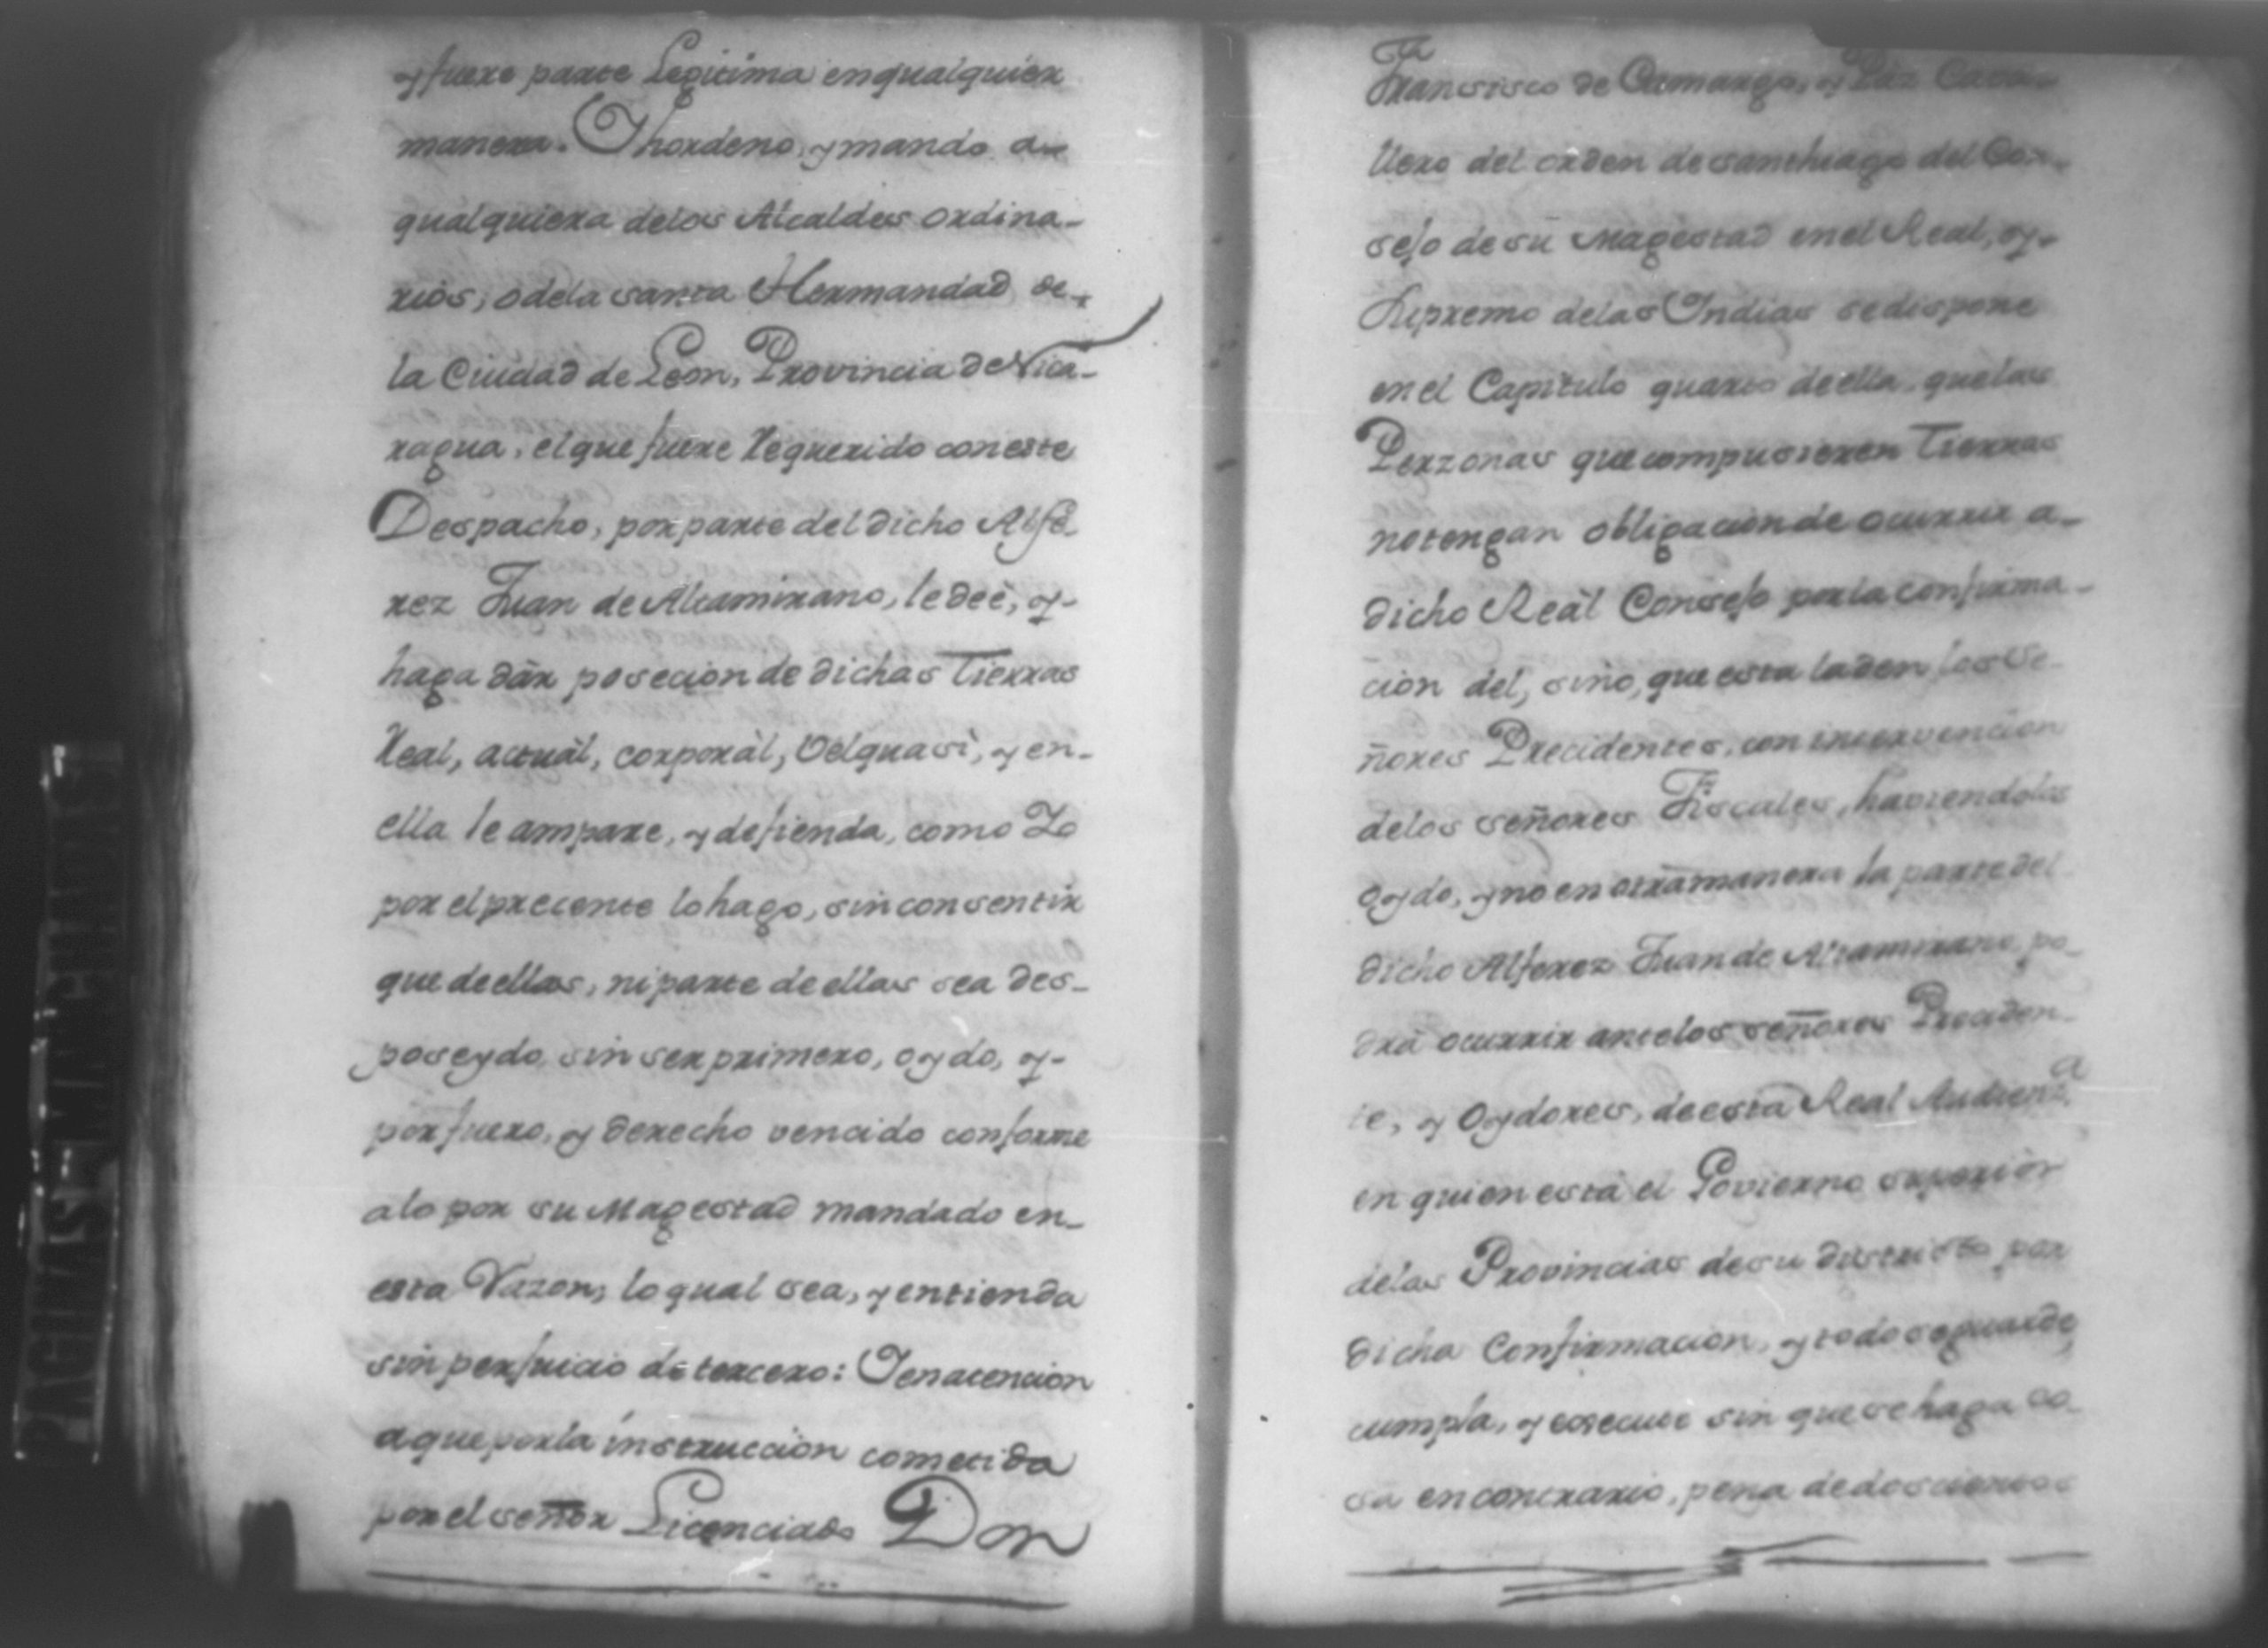 y fuere parte Legitima enqualquier
manera. Yhordeno, y mando a
qualquiera delos Alcaldes ordina-
rios, odela santa Hermandad de
la Ciudad de Leon, Provincia de Nica-
ragua, elque fuere Requerido coneste
Despacho, porparte del dicho Alfe-
rez Juan de Altamirano, le deè, y-
haga dàr posecion de dichas Tierras
Real, actuàl, corporàl, Velquasi, y en-
ella le ampare, y defienda, como Yo
por elprecente lo hago, sin consentir
que deellas, niparte de ellas sea des-
poseydo sin ser primero, oydo, y-
por fuero, y derecho vencido conforme
alo por su Magestad mandado en-
esta Razon, lo qual sea, y entienda
sin perjuicio de tercero: Yenatencion
aque porla instruccion cometida
por el señor Licenciado Don
Fransisco de Camargo, y Paz Cava-
llero del orden de santhiago del Con-
sejo de su Magestad enel Real, y-
Supremo delas Indias sedispone
en el Capitulo quarto deella, quelas
Perzonas que compusieren Tierras
notengan obligacion de ocurrir a-
dicho Reàl Consejo por la confirma-
cion del, sino, que esta laden los Se-
ñores Precidentes, con intervencion
delos señores Fiscales, haviendolos
oydo, y no en otra manera la parte del
dicho Alferez Juan de Altamirano po-
drà ocurrir antelos señores Preciden-
te, y Oydores, deesta Real Audienª
en quien està el Govierno superior
delas Provincias desu districto por
dicha Confirmacion, y todo seguarde,
cumpla, y execute sin que se haga co-
sa encontrario, pena dedoscientos